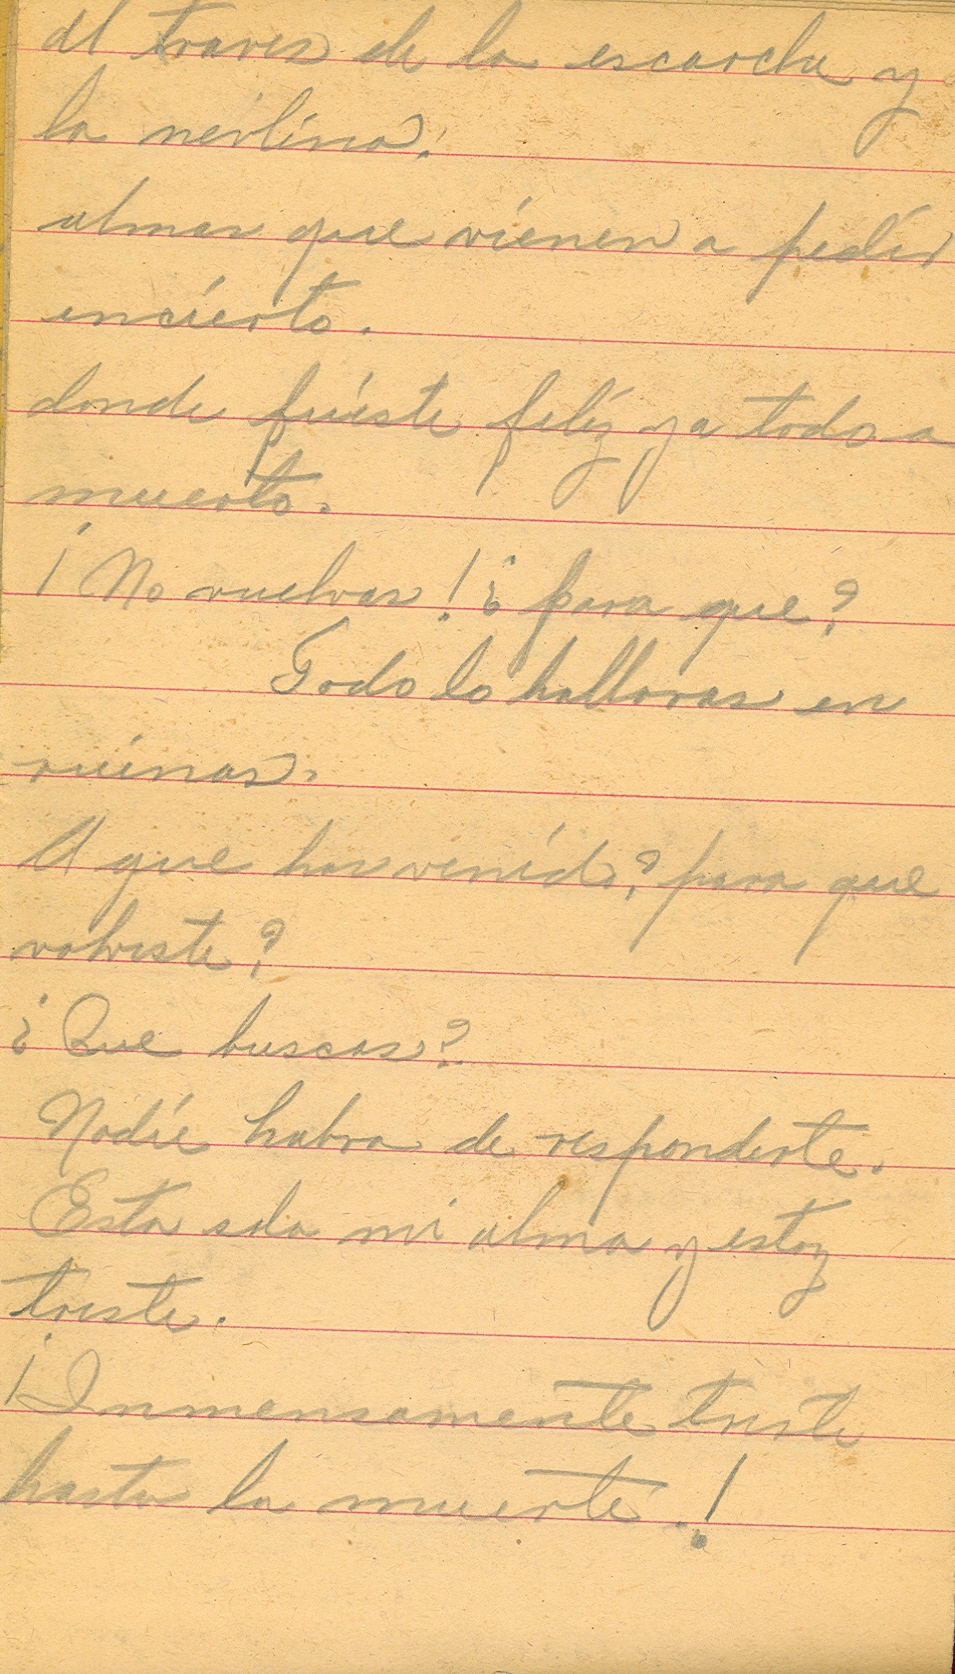 al traves de la escarcha y
la nevlina!
almas que vienen a pedir
encierto.
donde fuiste feliz ya todo a
muerto.
¡No vuelvas! ¿para que?
Todo lo hallaras en
ruinas.
A que has venido? para que
volviste?
¿Que buscas?
Nadie habra de responderte.
Esta sola mi alma y estoy
triste.
¡Inmensamente triste
hasta la muerte.!